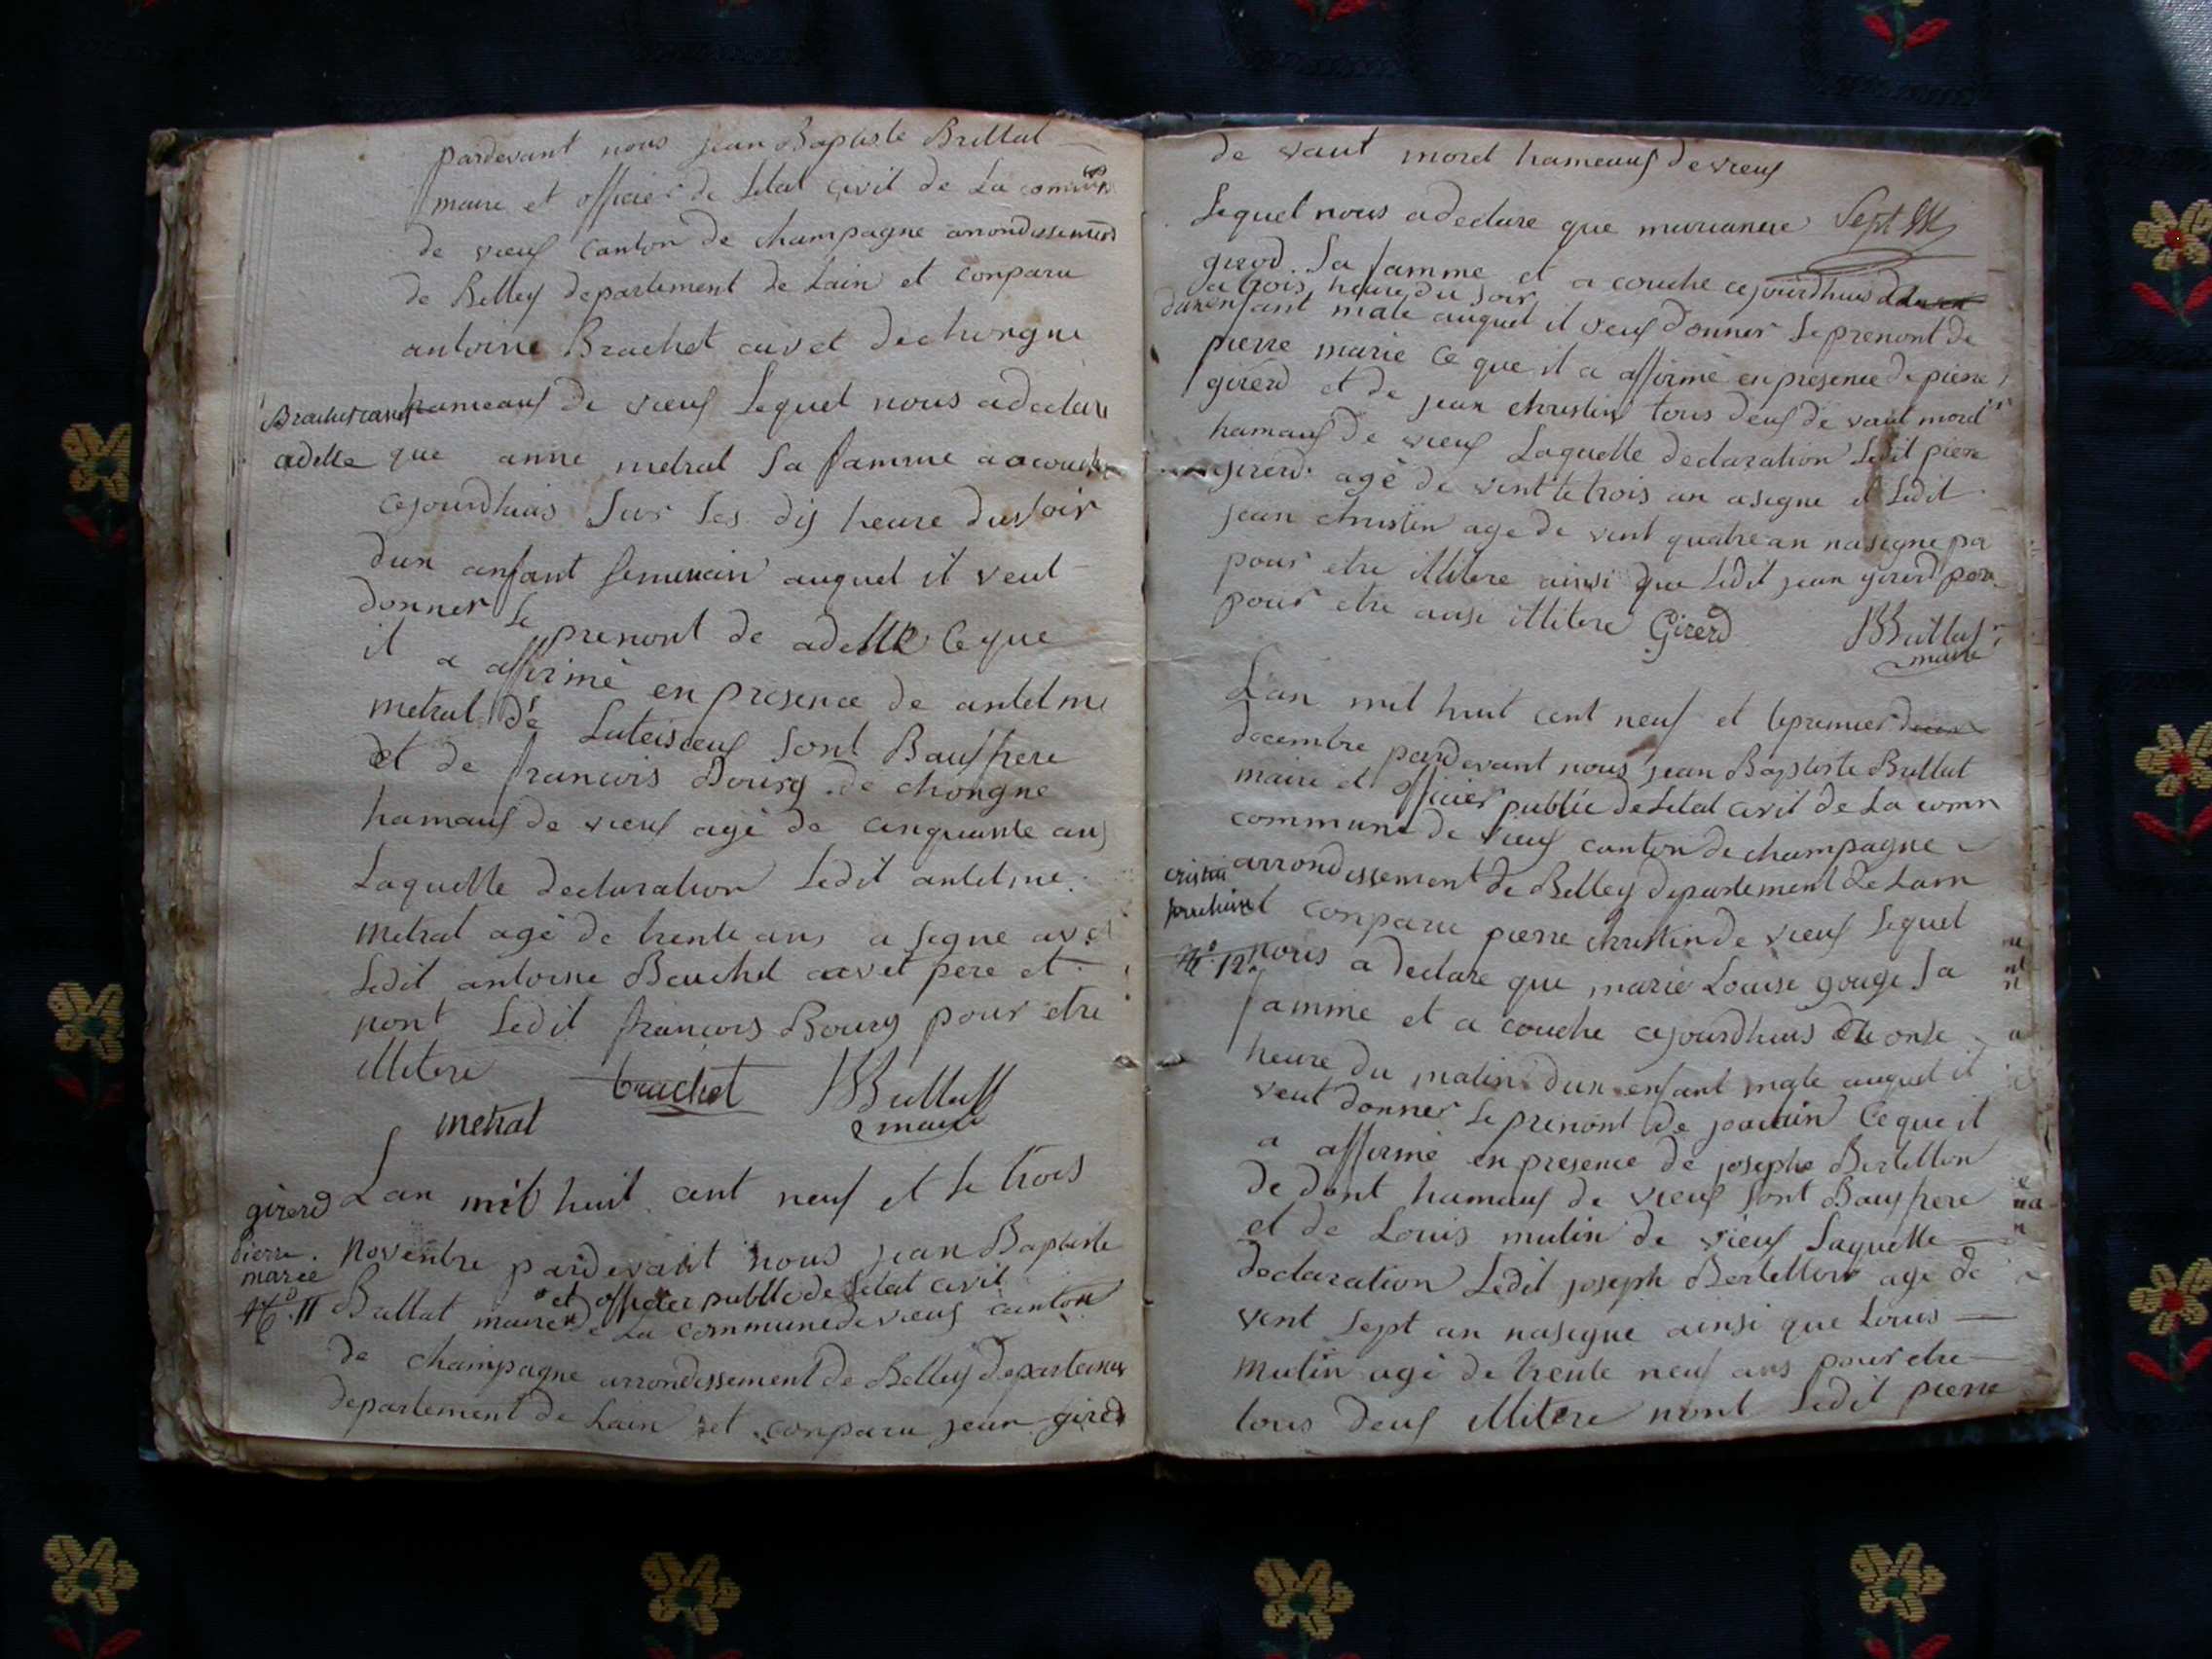 pardevant nous jean Baptiste Brillat
maire et officier de Letat civil de La comm
de vieuf canton de champagne arrondissement
de Belley departement de Lain et conparu
antoine Brachet
hameauf de vieuf Lequel nous a declare
adelle
que anne metral sa famme a acouche
cejourdhuis sur les dis heure du soir
dun anfant feminain auquel il veut
donner le prenont de adelle Ce que
il a affirmé en presence de antelme
metral de Luteisieuf sont Baufrere
et de francois Bourg de chongne
hamauf de vieuf agé de cinquante ans
Laquelle declaration Ledit antelme
metral agé de trente ans a segne avec
Ledit antoine Brachet pere et
nont Ledit francois Bourg pour etre
illitere
brachet
metral
maire
girerd
Lan mil huit cent neuf et le trois
pierre
marie
N° 11
novembre pardevant nous jean Baptiste
Brillat maire et officier public de Letat civil
de La commune de vieuf canton
de champagne arrondissement de Belley departemen
departement de Lain et conparu jean girerd
de vaut mord hameauf de vieuf
Sept
Lequel nous a declare que marianne
girod sa famme et a couche cejourdhuis
a trois heure du soir
dun enfant male auquel il veuf donner Le prenont de
pierre marie Ce que il a affirmé en presence de pierre
girerd et de jean christin tous deuf de vaut mord
hamauf de vieuf Laquelle declaration Ledit piere
girerd agé de vent te trois an a segne et Ledit
jean christin age de vent quatre an na segne pa
pour etre illitere ainsi que Ledit jean girerd pere
pour etre ausi illitere Girerd
maire
Lan mil huit cent neuf et le premier
decembre pardevant nous jean Baptiste Brillat
maire et officier public de Letat civil de La comm
commune de vieuf canton de champagne
cristin
arrondissement de Belley departement de Lain
et conparu pierre christin de vieuf Lequel
N° 12
nous a declare que marie Louise gouge sa
famme et a couche cejourdhuis onse
heure du matin dun enfant male auquel il
veut donner Le prenont de Ce que il
a affirmé en presence de josephe Bertellon
de dont hamauf de vieuf sont Baufrere
et de Louis mutin de vieuf Laquelle
declaration Ledit joseph Bertellon age de
vent sept an na segne ainsi que Louis
mutin agé de trente neuf ans pour etre
tous deuf illitere nont Ledit pierre